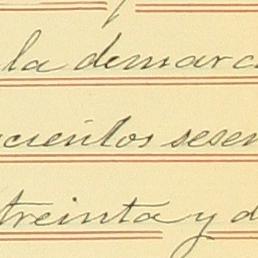 la demarc
cientos sesen
treinta y d